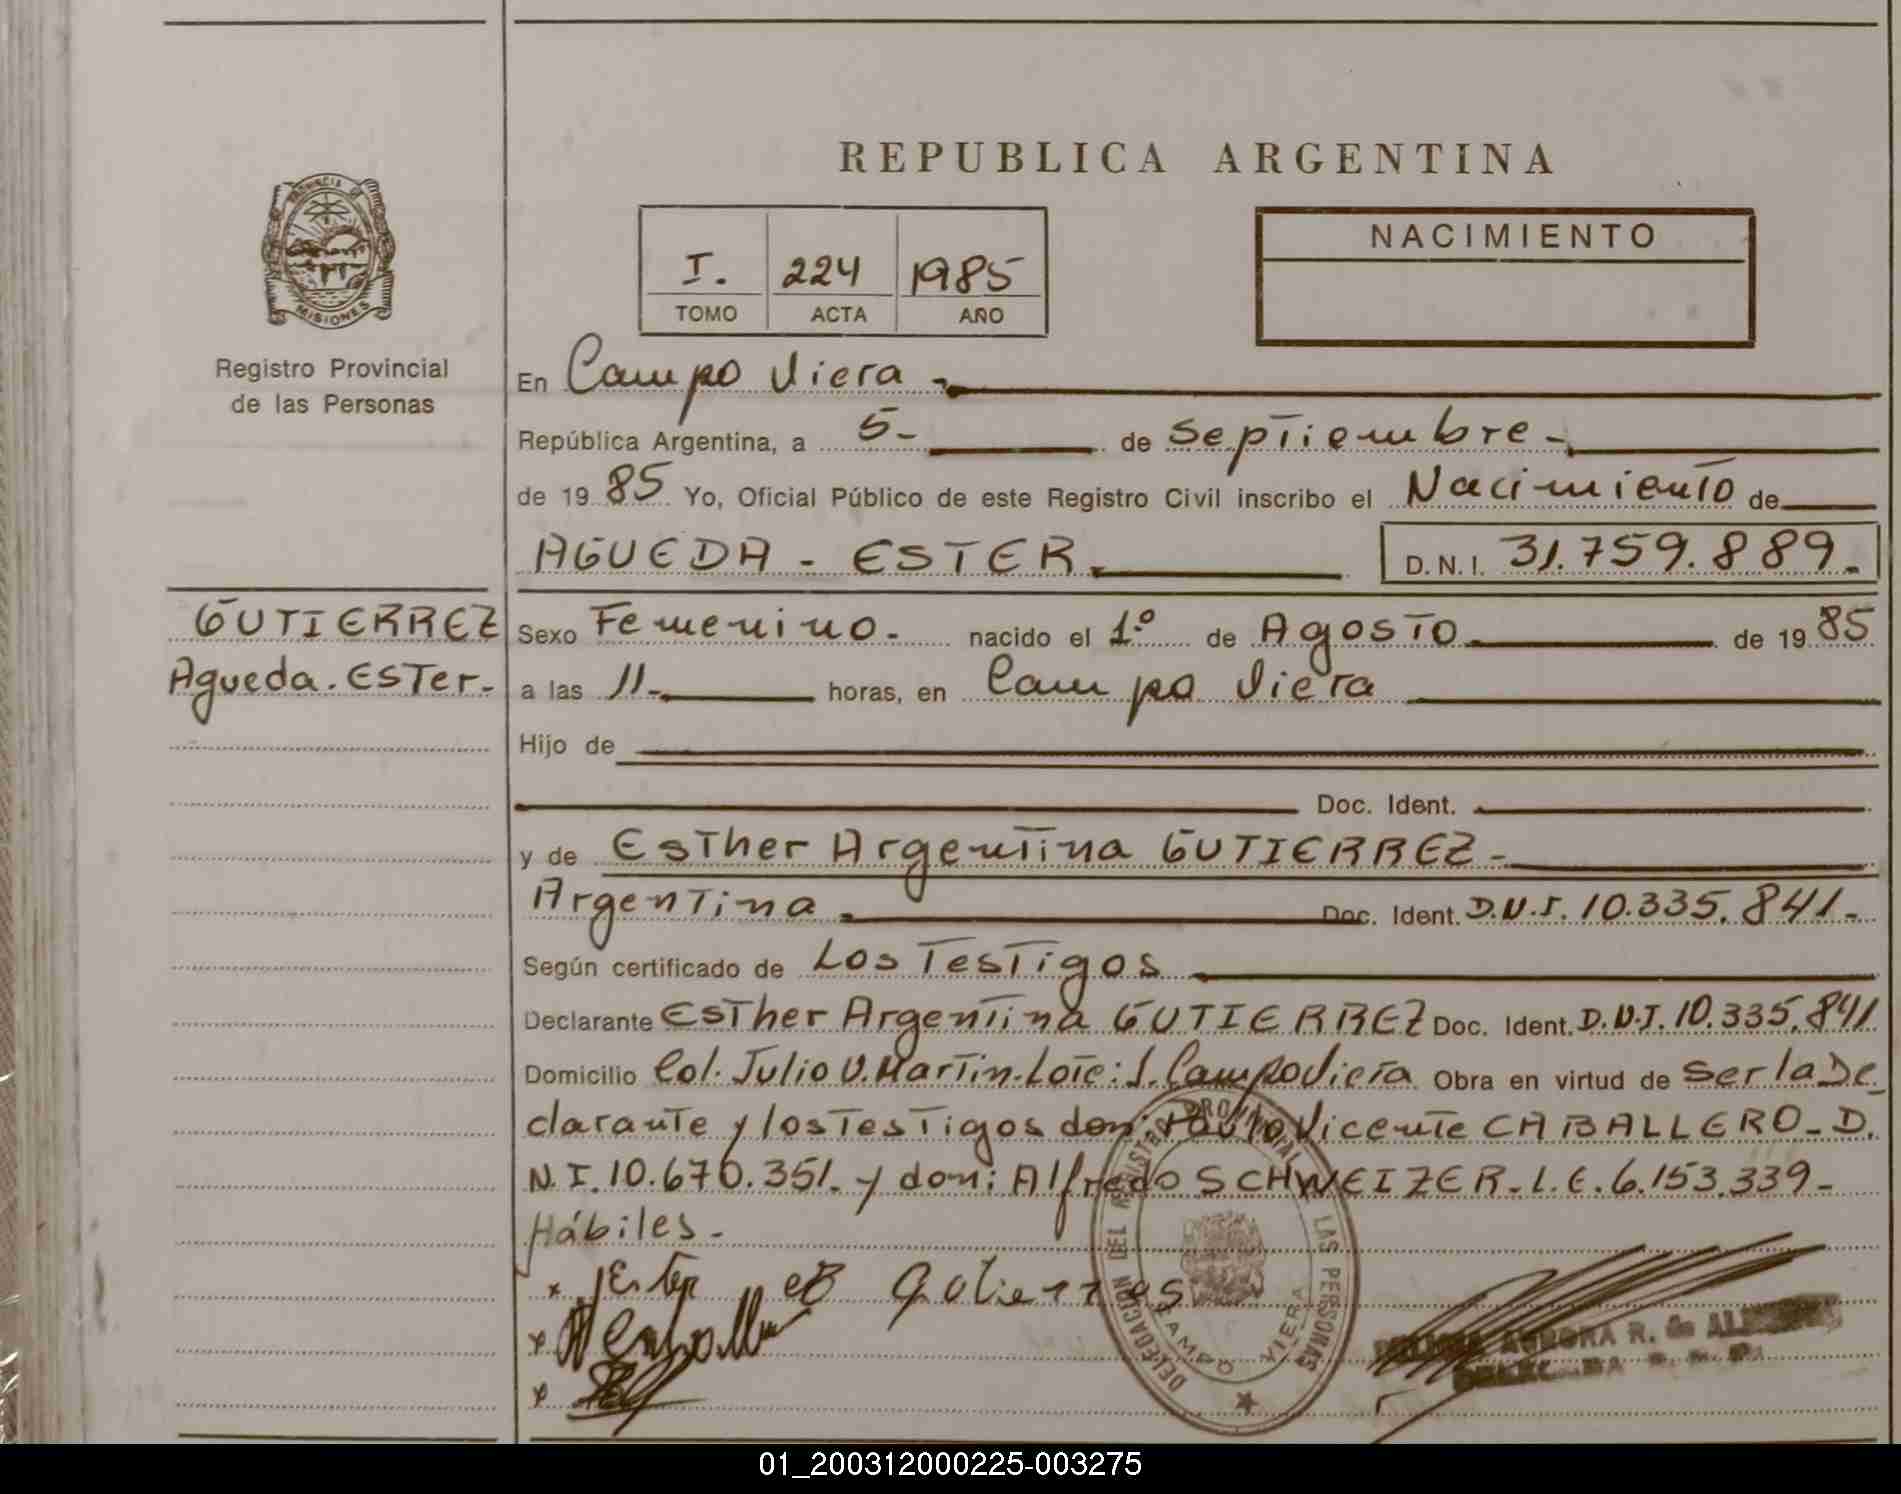 REPUBLICA ARGENTINA
PROVINCIA DE
MISIONES
Registro Provincial
de las Personas
I. 224 1985
TOMO ACTA AÑO
NACIMIENTO
En Campo Viera -
República Argentina, a 5- de Septiembre -
de 1985 Yo, Oficial Público de este Registro Civil inscribo el Nacimiento de
AGUEDA - ESTER. D.N.I. 31.759.889.-
GUTIERREZ
Agueda. ESTer-
Sexo Femenino.- nacido el 1º de Agosto de 1985
a las 11.- horas, en Campo Viera
Hijo de
Doc. Ident.
y de EsTher Argentina GUTIERREZ -
Argentina. Doc. Ident. D.N.I. 10.335.841.-
Según certificado de Los TesTigos
Declarante ESTher Argentina GUTIERREZ Doc. Ident. D.N.I. 10.335.841
Domicilio Col. Julio U. Martin. Campo Viera Obra en virtud de ser la De
clarante y los TesTigos don: Vicente CABALLERO - D.
N.I. 10.670.351.- y don: Alfredo SCHWEIZER - L.E. 6.153.339 -
Hábiles -
x Ester Gutierres
x
x
DELEGACION DEL REGISTRO PROVINCIAL DE LAS PERSONAS
CAMPO VIERA
AURORA R. de
01_200312000225-003275